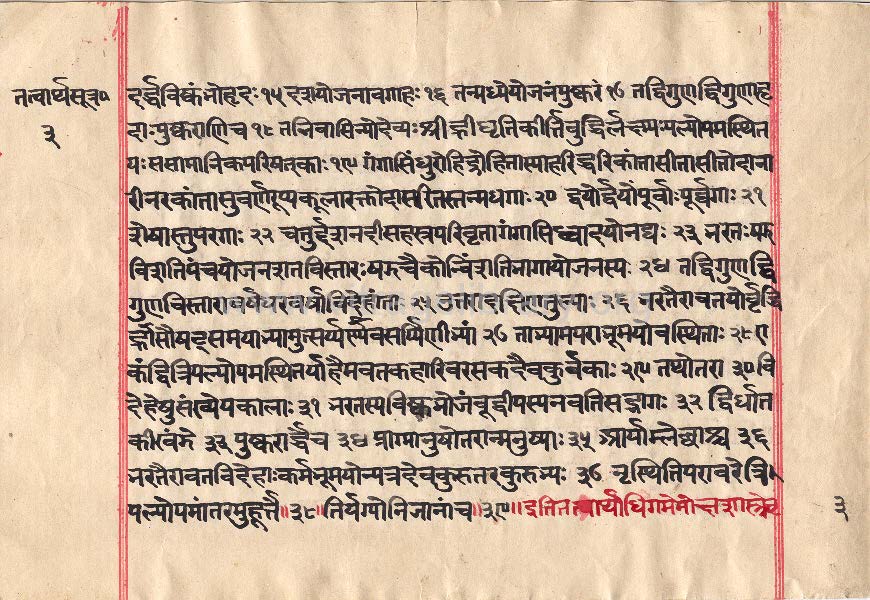 तत्वार्थसूत्र०
३
दर्द्धविष्कंभोहृदः १५ दशयोजनावगाहः १६ तन्मध्येयोजनंपुष्करं १७ तद्विगुणद्विगुणाहृ
दाःपुष्कराणिच १८ तन्निवासिन्योदेव्यः श्रीह्रीधृतिकीर्त्तिबुद्धिर्लक्ष्म्यःपल्योपमस्थित
यः ससामानिकपरिषत्काः १९ गंगासिंधुरोहिद्रोहितास्याहरिद्धरिकांतासीतासीतोदाना
रीनरकांतासुवर्णरूप्यकूलारक्तोदासरितस्तन्मधगाः २० द्वयोर्द्वयोपूर्वाःपूर्वगाः २१
शेषास्तुपरगाः २२ चतुर्द्दशनदीसहस्त्रपरिवृतागंगासिंध्वादयोनद्यः २३ भरतःषट्
विंशतिपंचयोजनशतविस्तारःषट्चैकोन्विंशतिभागायोजनस्यः २४ तद्विगुणद्वि
गुणविस्तारावर्षधरवर्षाविदेहांता २५ उत्तरादक्षिणतुल्याः २६ भरतैरावतयोर्वृद्धि
र्ह्रासौषट्समयाभ्यामुत्सर्पिण्यवसर्प्पिणीभ्यां २७ ताभ्यामपराभूमयोवस्थिताः २८ ए
कंद्वित्रिपल्योपमस्थितयोहैमवतकहारिवरसकदैवकुर्वकाः २९ तथोतरा ३० वि
देहेषुसंख्येयकालाः ३१ भरतस्यविष्कंभोजंबूद्वीपस्यनवतिसद्भागः ३२ द्विर्धात
कीखंडे ३३ पुष्करार्द्धेच ३४ प्राग्मानुषोतरान्मनुष्याः ३५ आर्याम्लेच्छाश्च ३६
भरतैरावतविदेहाःकर्मभूमयोन्यत्रदेवकुरूतरकुरुभ्यः ३७ नृस्थितिपरावरेत्रि
पल्योपमांतरमुहूर्त्ते॥३८॥तिर्यग्योनिजानांच॥३९॥इतितत्वार्थाधिगमेमोक्षशास्त्रे
३